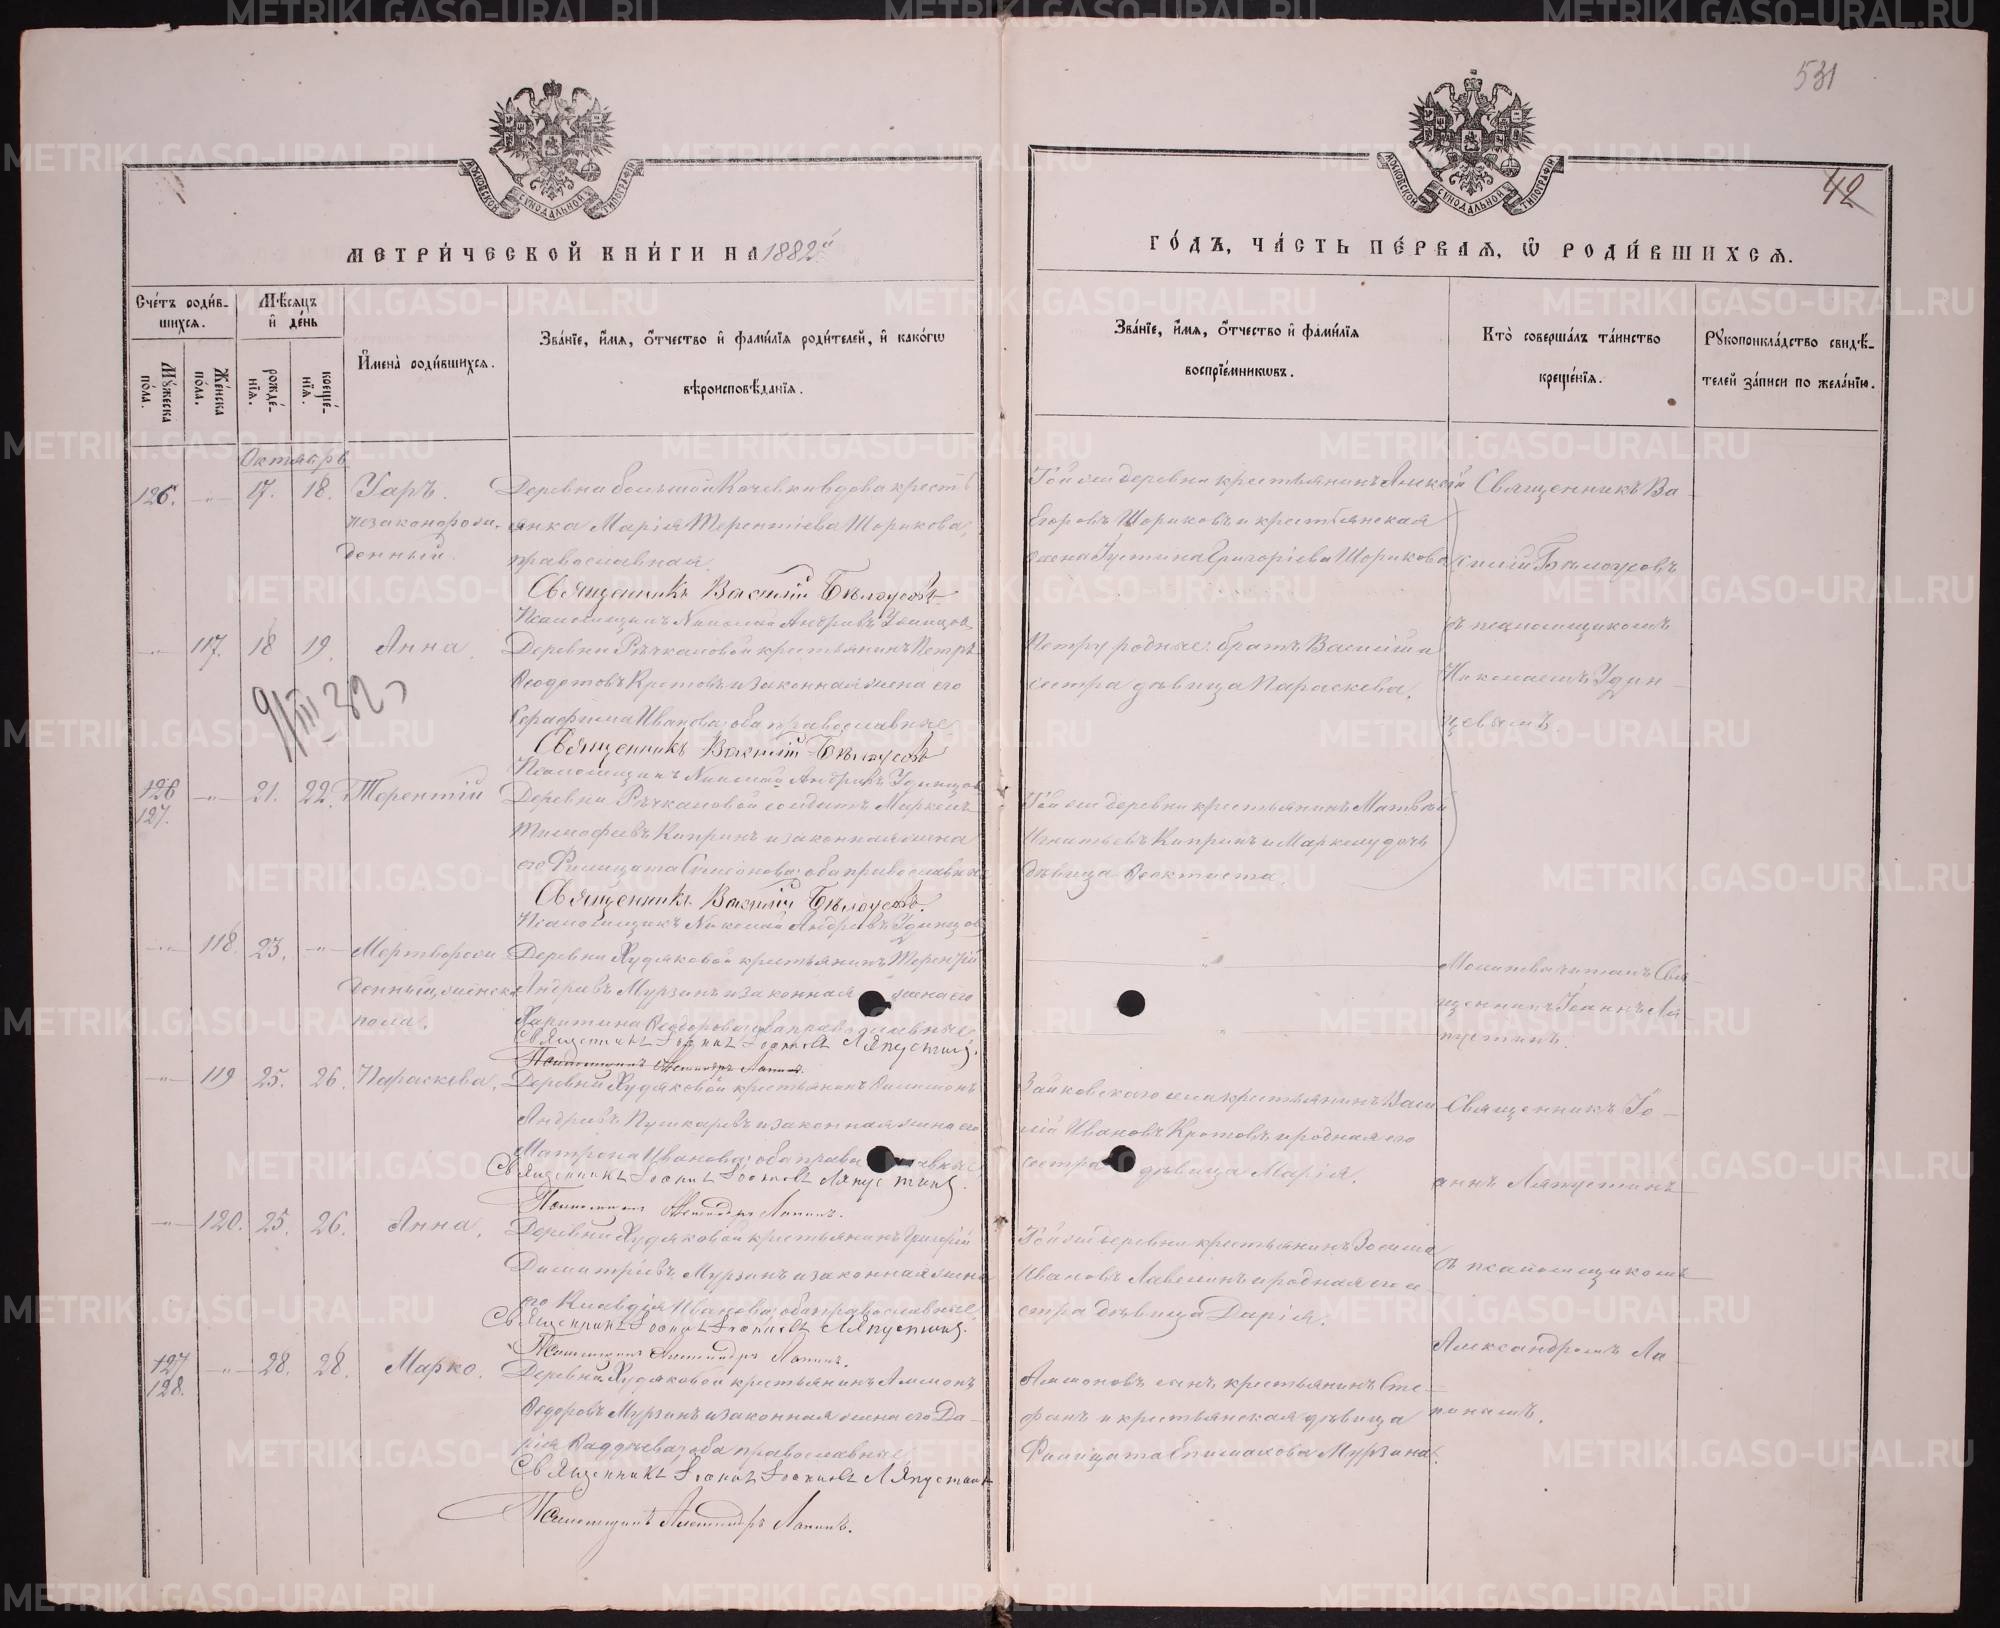 531
42
МОСКОВСКОЙ СѴНОДАЛЬНОЙ ТИПОГРАФІИ
МОСКОВСКОЙ СѴНОДАЛЬНОЙ ТИПОГРАФІИ
МЕТРИ́ЧЕСКОЙ КНИ́ГИ НА 1882й
ГО́ДЪ, ЧА́СТЬ ПЕ́РВАЯ, Ѡ҆ РОДИ́ВШИХСЯ.
Сче́тъ роди́в-
шихся.
Мꙋ́жеска по́ла.
Же́нска по́ла.
Мѣ́сяцъ и҆ де́нь
рожде́-нїя.
креще́-нїя.
И҆мена̀ роди́вшихся.
Зва́нїе, и҆́мя, ѻ҆́тчество и҆ фами́лїя роди́телей, и҆ како́гѡ
вѣроисповѣ́данїя.
Зва́нїе, и҆́мя, ѻ҆́тчество и҆ фами́лїя
воспрїе́мникѡвъ.
Кто̀ соверша́лъ та́инство
креще́нїя.
Рꙋкоприкла́дство свидѣ́-
телей за́писи по жела́нїю.
Октябрь
126. -"- 17. 18. Уаръ.
незаконорож-
денный.
Деревни большой Кочевки вдова кресть
янка Марія Терентіева Шорикова,
православная.
Священникъ Василій Бѣлоусовъ
Псаломщикъ Николай Андреевъ Удинцов
Той же деревни крестьянинъ Алексѣй
Егоровъ Шориковъ и крестьянская
жена Іустина Григоріева Шорикова
Священникъ Ва-
силій Бѣлоусовъ
съ псаломщикомъ
Николаемъ Удин-
цевымъ.
-"- 117. 18 19. Анна.
Деревни Рѣчкаловой крестьянинъ Петръ
Ѳеодотовъ Кротовъ и законная жена его
Серафима Иванова: оба православные
Священникъ Василій Бѣлоусовъ
Псаломщикъ Николай Андреевъ Удинцов
Петру родные: братъ Василій и
сестра дѣвица Параскева.
9/III 32
126 127. -"- 21. 22. Терентій
Деревни Рѣчкаловой солдатъ Маркелъ
Тимофѣевъ Капринъ и законная жена
его Филицата Симеонова: оба православные
Священникъ Василій Бѣлоусовъ.
Псаломщикъ Николай Андреевъ Удинцов
Той же деревни крестьянинъ Матвѣй
Игнатьевъ Капринъ и Маркелу дочь
дѣвица Ѳеоктиста.
-"- 118. 23. -"- Мертворож
денный, женска
пола.
Деревни Худяковой крестьянинъ Терентій
Андреевъ Мурзинъ и законная жена его
Харитина Ѳеодорова: оба православные
Священникъ Іоаннъ Іоанновъ Ляпустинъ.
Псаломщикъ Александръ Лапинъ.
-"-
-"-
Молитвы читалъ Свя
щенникъ Іоаннъ Ля-
пустинъ.
-"- 119 25. 26. Параскева.
Деревни Худяковой крестьянинъ Филимонъ
Андреевъ Пушкаревъ и законная жена его
Матрона Иванова: оба православные
Священникъ Іоаннъ Іоанновъ Ляпустинъ.
Псаломщикъ Александръ Лапинъ.
Зайковскаго села крестьянинъ Васи
лій Ивановъ Кротовъ и родная его
сестра дѣвица Марія.
Священникъ Іо-
аннъ Ляпустинъ
съ псаломщикомъ
Александромъ Ла-
пинымъ.
-"- 120. 25. 26. Анна.
Деревни Худяковой крестьянинъ Григорій
Димитріевъ Мурзинъ и законная жена
его Клавдія Иванова: оба православные
Священникъ Іоаннъ Іоанновъ Ляпустинъ.
Псаломщикъ Александръ Лапинъ.
Той же деревни крестьянинъ Зосима
Ивановъ Лавелинъ и родная его се
стра дѣвица Дарія.
127 128. -"- 28. 28. Марко.
Деревни Худяковой крестьянинъ Аммонъ
Ѳеодоровъ Мурзинъ и законная жена его Да-
рія Ѳаддеева; оба православные
Священникъ Іоаннъ Іоанновъ Ляпустинъ
Псаломщикъ Александръ Лапинъ.
Аммоновъ сынъ, крестьянинъ Сте-
фанъ и крестьянская дѣвица
Филицата Епимахова Мурзина.
METRIKI.GASO-URAL.RU